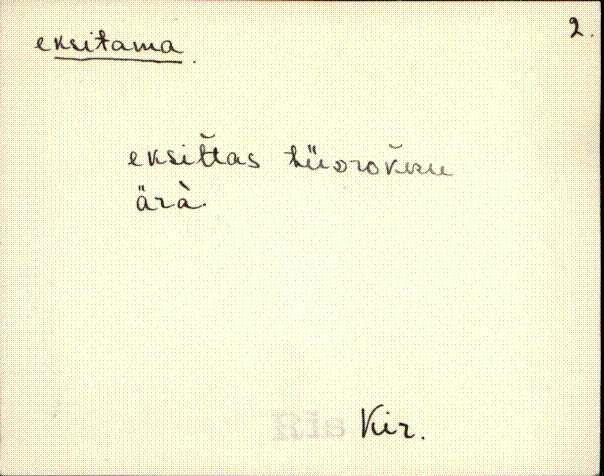 2.
eksitama.
eksittas tüdrokku
ärà.
Ris Kir.